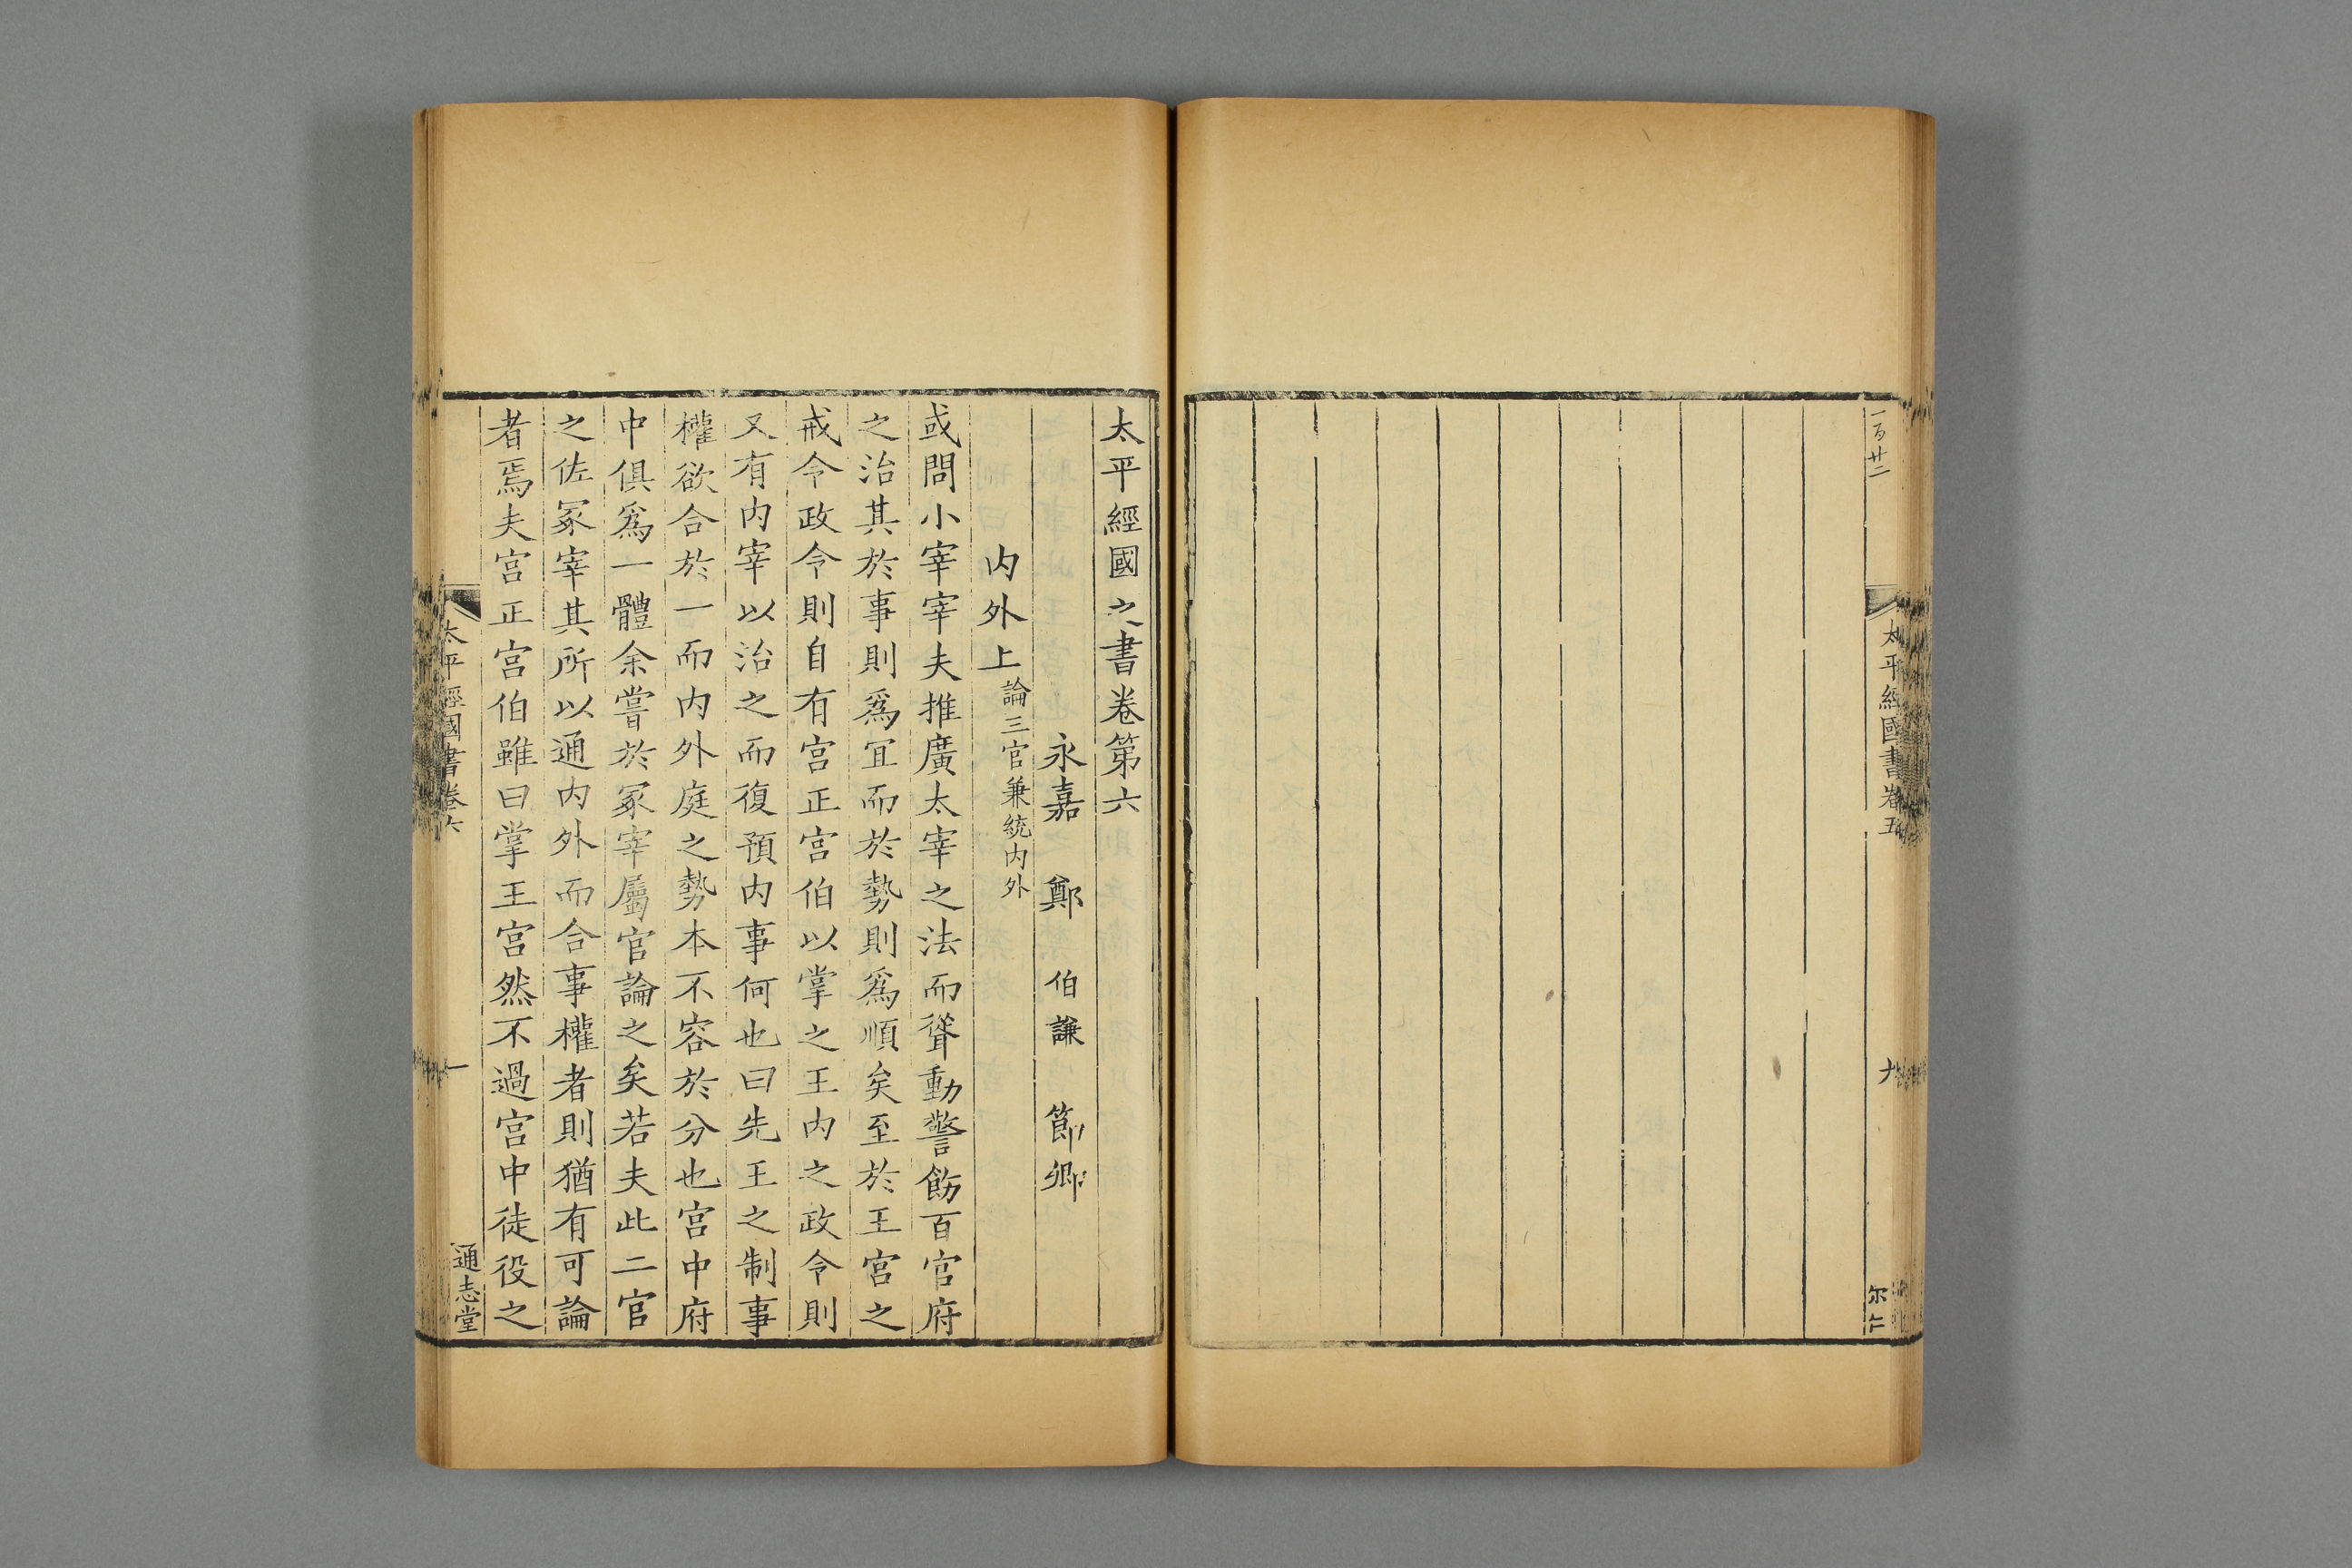 一百廿二
太平經國書卷五
九
太平經國之書卷第六
永嘉 鄭 伯謙 節卿
内外上論三官兼統内外
或問小宰宰夫推廣太宰之法而聳動警飭百官府
之治其於事則爲宜而於勢則爲順矣至於王宮之
戒令政令則自有宮正宮伯以掌之王内之政令則
又有内宰以治之而復預内事何也曰先王之制事
權欲合於一而内外庭之勢本不容於分也宮中府
中俱爲一體余嘗於冢宰屬官論之矣若夫此二官
之佐冢宰其所以通内外而合事權者則猶有可論
者焉夫宮正宮伯雖曰掌王宮然不過宮中徒役之
太平經國書卷六
一
通志堂